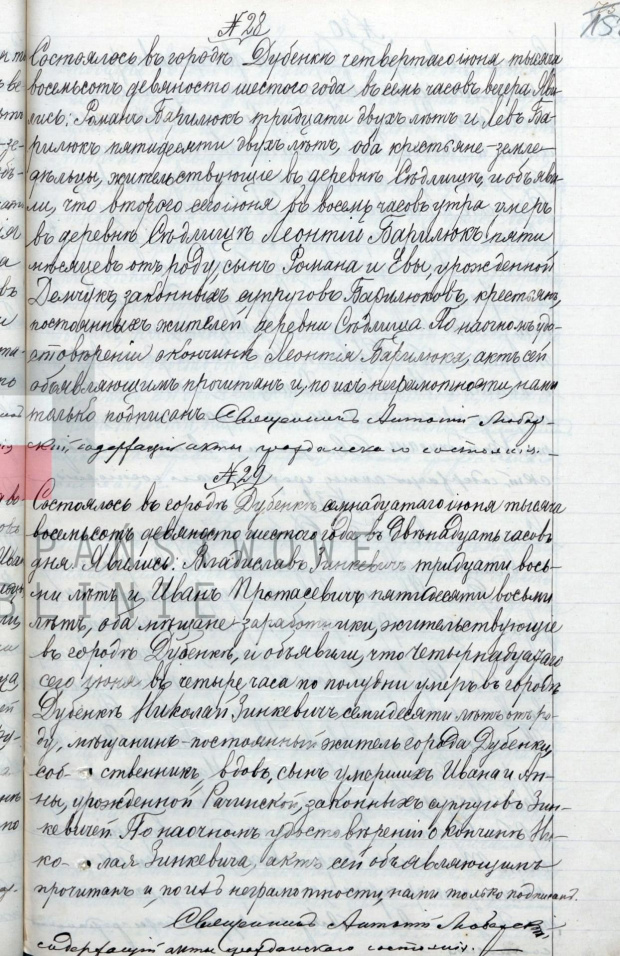 № 28
Состоялось въ городѣ Дубенкѣ четвертаго іюня тысяча
восемьсотъ девяносто шестого года въ семь часовъ вечера. Яви-
лись: Романъ Барилюкъ тридцати двухъ лѣтъ и Левъ Ба-
рилюкъ пятидесяти двухъ лѣтъ, оба крестьяне-земле-
дѣльцы, жительствующіе въ деревнѣ Сѣдлищѣ, и объяви-
ли, что второго сего іюня въ восемь часовъ утра умеръ
въ деревнѣ Сѣдлищѣ Леонтій Барилюкъ, пяти
мѣсяцевъ отъ роду, сынъ Романа и Евы, урожденной
Демчукъ, законныхъ супруговъ Барилюковъ, крестьянъ,
постоянныхъ жителей деревни Сѣдлища. По наочномъ удо-
стовѣреніи о кончинѣ Леонтія Барилюка, актъ сей
объявляющимъ прочитанъ и, по ихъ неграмотности, нами
только подписанъ. Священникъ Антоній Любар-
скій содержащій акты гражданскаго состоянія.
№ 29
Состоялось въ городѣ Дубенкѣ іюня тысяча
восемьсотъ девяносто шестого года въ двѣнадцать часовъ
дня. Явились: Владиславъ Зинкевичъ тридцати вось-
ми лѣтъ и Иванъ Протасевичъ пятидесяти восьми
лѣтъ, оба мѣщане-заработники, жительствующіе
въ городѣ Дубенкѣ, и объявили, что четырнадцатаго
сего іюня въ четыре часа по полудни умеръ въ городѣ
Дубенкѣ Николай Зинкевичъ семидесяти лѣтъ отъ ро-
ду, мѣщанинъ-постоянный житель города Дубенки,
соб- ственникъ, вдовъ, сынъ умершихъ Ивана и Ан-
ны, урожденной Рачинской, законныхъ супруговъ Зин-
кевичей. По наочномъ удостовѣреніи о кончинѣ Ни-
ко- лая Зинкевича, актъ сей объявляющимъ
прочитанъ и, по ихъ неграмотности, нами только подписанъ.
Священникъ Антоній Любарскій
содержащій акты гражданскаго состоянія.
PAŃSTWOWE
BLINIE